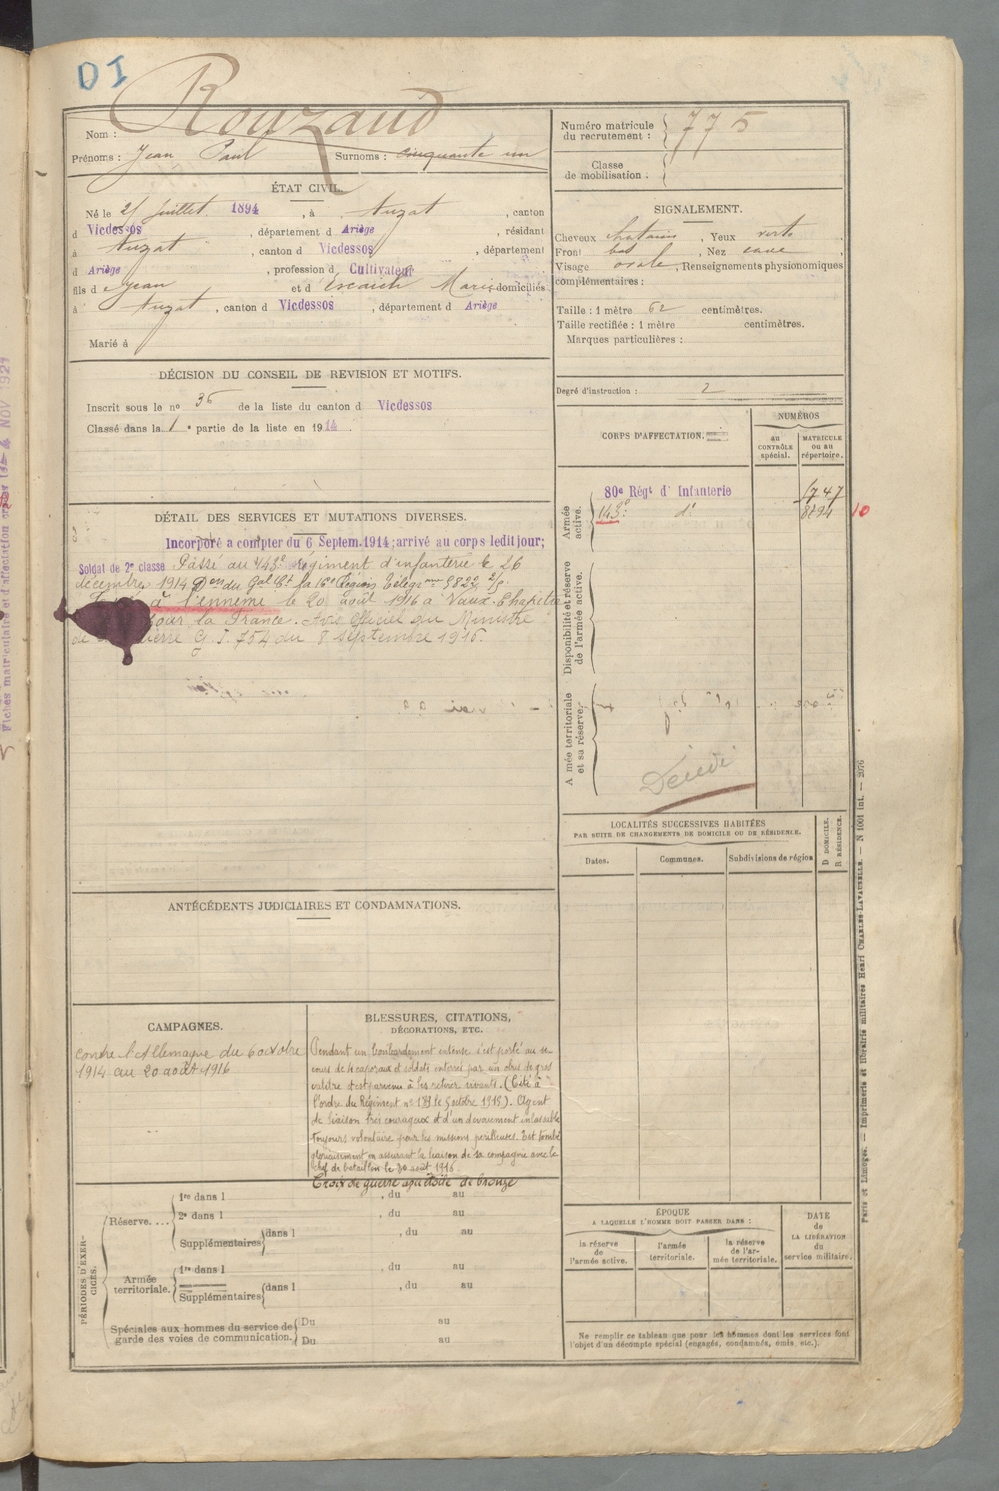 DI
Rouzaud
Nom :
Prénoms : Jean Paul Surnoms : cinquante un
Numéro matricule du recrutement : 775
Classe de mobilisation :
ÉTAT CIVIL.
Né le 21 Juillet 1894, à Auzat, canton
d Vicdessos, département d Ariège, résidant
à Auzat, canton d Vicdessos, département
d Ariège, profession d Cultivateur
fils de Jean et d'Escaich Marie domiciliés
à Auzat, canton d Vicdessos, département d Ariège
Marié à
SIGNALEMENT.
Cheveux chatains, Yeux verts
Front bas, Nez cave,
Visage ovale, Renseignements physionomiques
complémentaires :
Taille : 1 mètre 62 centimètres.
Taille rectifiée : 1 mètre centimètres.
Marques particulières :
Degré d'instruction : 2
DÉCISION DU CONSEIL DE REVISION ET MOTIFS.
Inscrit sous le no 36 de la liste du canton d Vicdessos
Classé dans la 1e partie de la liste en 1914.
CORPS D'AFFECTATION.
NUMÉROS
au CONTRÔLE spécial.
MATRICULE ou au répertoire.
Armée active.
80e Régt d'Infanterie 6747
143e do 8894 10
Disponibilité et réserve de l'armée active.
Armée territoriale et sa réserve.
Décédé
DÉTAIL DES SERVICES ET MUTATIONS DIVERSES.
Incorporé a compter du 6 Septem. 1914; arrivé au corps ledit jour;
Soldat de 2e classe Passé au 143e Régiment d'infanterie le 26
décembre 1914 Don du Gal Ct la 16e Région Télégr 8822
à l'ennemi le 20 août 1916 à Vaux-Chapitre
pour la France. Avis Officiel du Ministre
de Guerre G. J. 754 du 8 Septembre 1916.
LOCALITÉS SUCCESSIVES HABITÉES
PAR SUITE DE CHANGEMENTS DE DOMICILE OU DE RÉSIDENCE.
Dates.
Communes.
Subdivisions de région
D DOMICILE. R RÉSIDENCE.
ANTÉCÉDENTS JUDICIAIRES ET CONDAMNATIONS.
CAMPAGNES.
Contre l'Allemagne du 6 octobre
1914 au 20 août 1916
BLESSURES, CITATIONS,
DÉCORATIONS, ETC.
Pendant un bombardement intense s'est porté au se
cours de 4 caporaux et soldats enterrés par un obus de gros
calibre et est parvenu à les retirer vivants. (Cité à
l'ordre du Régiment no 189 le 9 octobre 1915). Agent
de liaison très courageux et d'un dévouement inlassable
toujours volontaire pour les missions périlleuses. Est tombé
glorieusement en assurant la liaison de sa compagnie avec le
chef de bataillon le 20 août 1916
Croix de guerre avec étoile de bronze
PÉRIODES D'EXERCICES.
Réserve....
1re dans l , du au
2e dans l , du au
Supplémentaires dans l , du au
Armée territoriale.
1re dans l , du au
Supplémentaires dans l , du au
Spéciales aux hommes du service de garde des voies de communication.
Du au
Du au
ÉPOQUE
A LAQUELLE L'HOMME DOIT PASSER DANS :
la réserve de l'armée active.
l'armée territoriale.
la réserve de l'armée territoriale.
DATE de LA LIBÉRATION du service militaire.
Ne remplir ce tableau que pour les hommes dont les services font
l'objet d'un décompte spécial (engagés, condamnés, omis, etc.).
Paris et Limoges. — Imprimerie et librairie militaires Henri CHARLES-LAVAUZELLE. — N 1001 int. — 2076